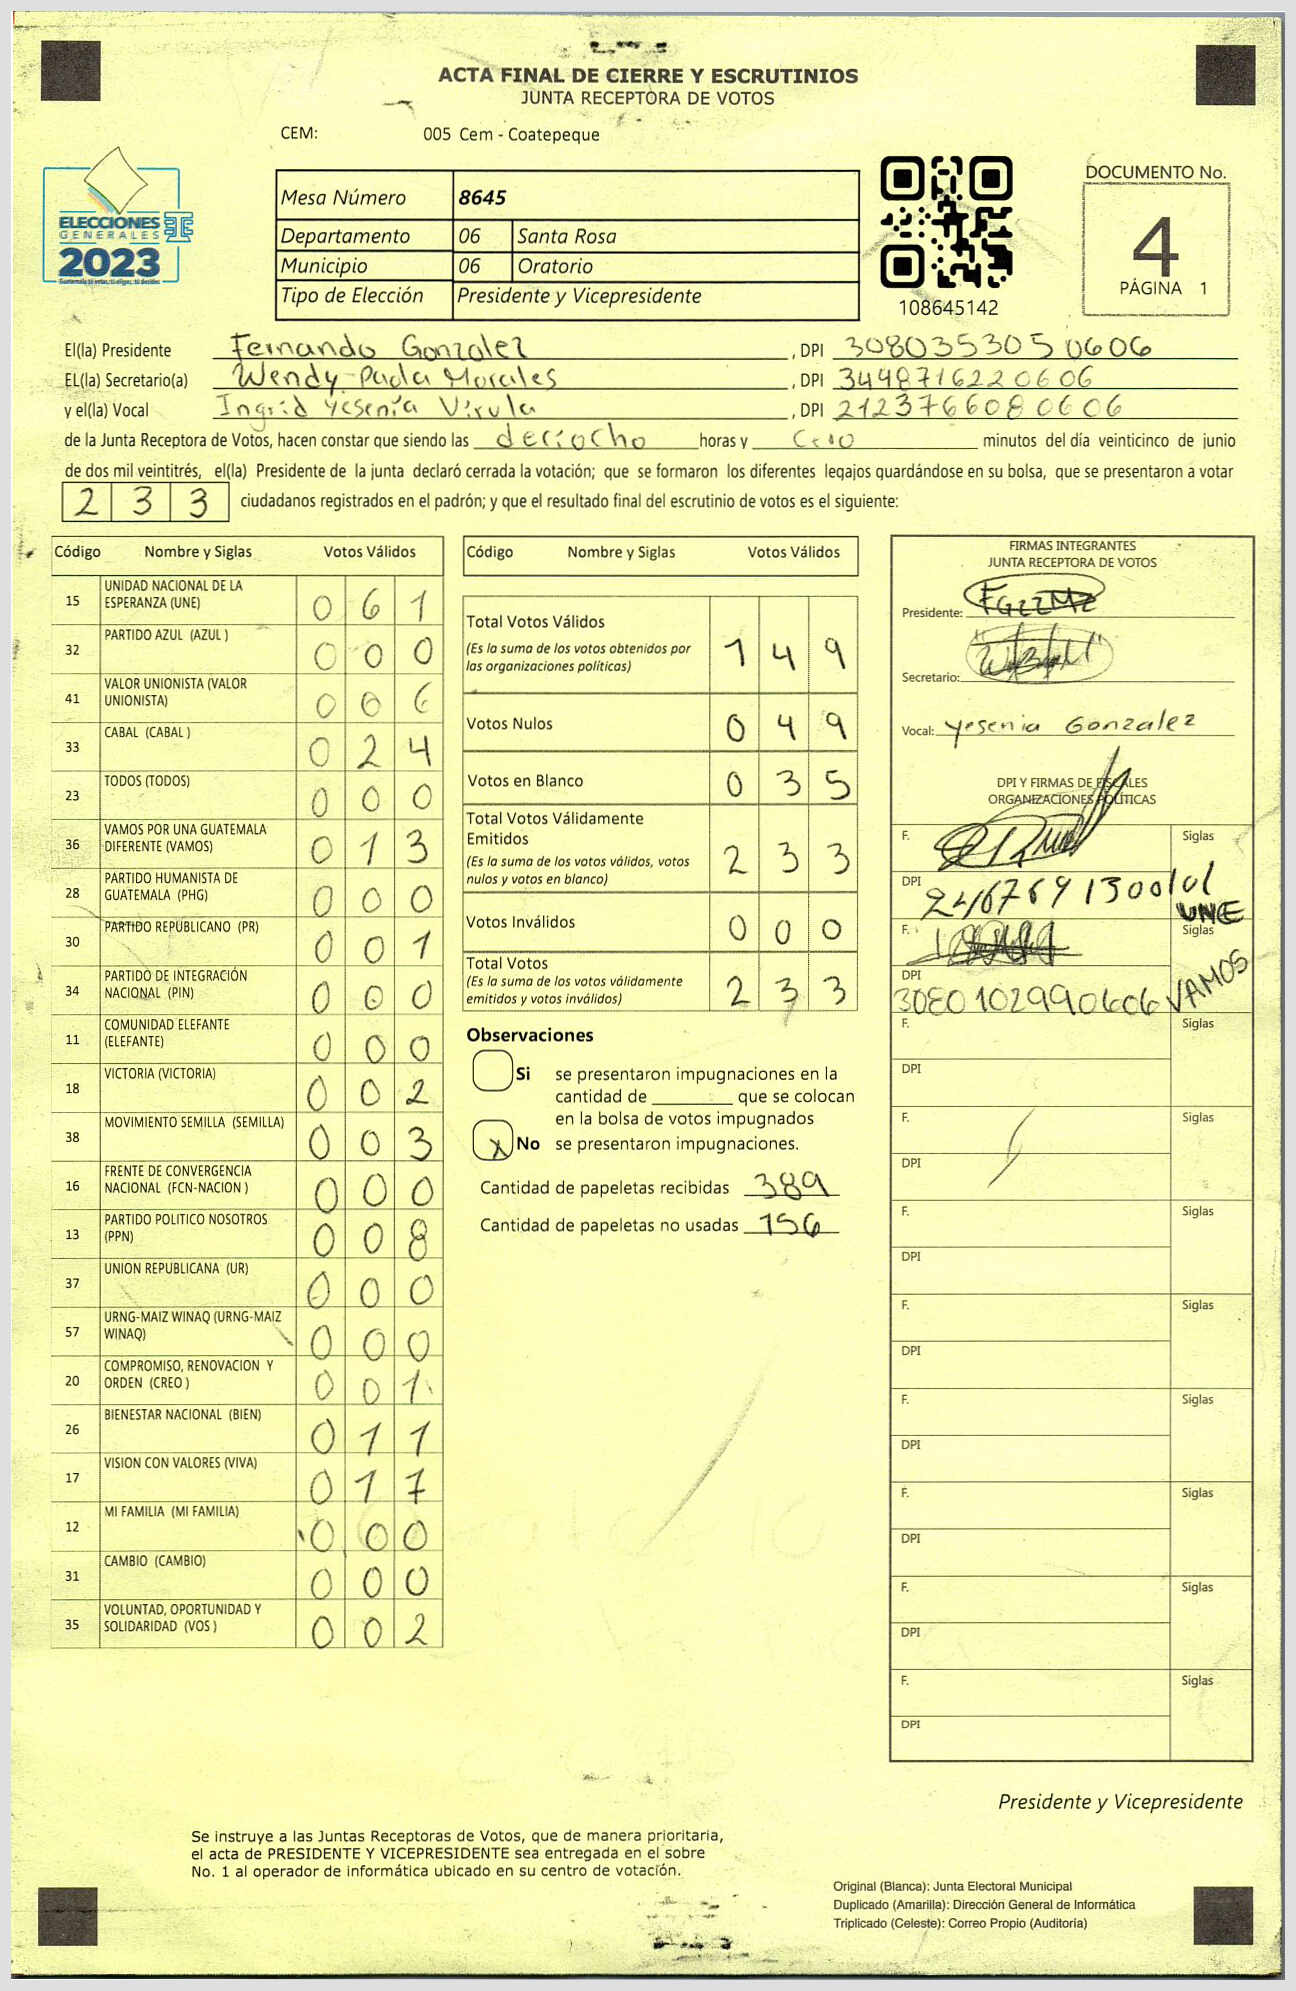 ACTA FINAL DE CIERRE Y ESCRUTINIOS
JUNTA RECEPTORA DE VOTOS
CEM: 005 Cem - Coatepeque
ELECCIONES
GENERALES
2023
Mesa Número 8645
Departamento 06 Santa Rosa
Municipio 06 Oratorio
Tipo de Elección Presidente y Vicepresidente
108645142
DOCUMENTO No.
4
PÁGINA 1
El(la) Presidente Fernando Gonzalez , DPI 3080353050606
EL(la) Secretario(a) Wendy Paola Morales , DPI 34498716220606
y el(la) Vocal Ingrid Yesenia Virula , DPI 2123766080606
de la Junta Receptora de Votos, hacen constar que siendo las deciocho horas y cero minutos del día veinticinco de junio
de dos mil veintitrés, el(la) Presidente de la junta declaró cerrada la votación; que se formaron los diferentes legajos guardándose en su bolsa, que se presentaron a votar
2 3 3 ciudadanos registrados en el padrón; y que el resultado final del escrutinio de votos es el siguiente:
Código Nombre y Siglas Votos Válidos
15 UNIDAD NACIONAL DE LA ESPERANZA (UNE) 0 6 1
32 PARTIDO AZUL (AZUL ) 0 0 0
41 VALOR UNIONISTA (VALOR UNIONISTA) 0 0 6
33 CABAL (CABAL ) 0 2 4
23 TODOS (TODOS) 0 0 0
36 VAMOS POR UNA GUATEMALA DIFERENTE (VAMOS) 0 1 3
28 PARTIDO HUMANISTA DE GUATEMALA (PHG) 0 0 0
30 PARTIDO REPUBLICANO (PR) 0 0 1
34 PARTIDO DE INTEGRACIÓN NACIONAL (PIN) 0 0 0
11 COMUNIDAD ELEFANTE (ELEFANTE) 0 0 0
18 VICTORIA (VICTORIA) 0 0 2
38 MOVIMIENTO SEMILLA (SEMILLA) 0 0 3
16 FRENTE DE CONVERGENCIA NACIONAL (FCN-NACION ) 0 0 0
13 PARTIDO POLITICO NOSOTROS (PPN) 0 0 8
37 UNION REPUBLICANA (UR) 0 0 0
57 URNG-MAIZ WINAQ (URNG-MAIZ WINAQ) 0 0 0
20 COMPROMISO, RENOVACION Y ORDEN (CREO ) 0 0 1
26 BIENESTAR NACIONAL (BIEN) 0 1 1
17 VISION CON VALORES (VIVA) 0 1 7
12 MI FAMILIA (MI FAMILIA) 0 0 0
31 CAMBIO (CAMBIO) 0 0 0
35 VOLUNTAD, OPORTUNIDAD Y SOLIDARIDAD (VOS ) 0 0 2
Código Nombre y Siglas Votos Válidos
Total Votos Válidos 1 4 9
(Es la suma de los votos obtenidos por
las organizaciones políticas)
Votos Nulos 0 4 9
Votos en Blanco 0 3 5
Total Votos Válidamente
Emitidos 2 3 3
(Es la suma de los votos válidos, votos
nulos y votos en blanco)
Votos Inválidos 0 0 0
Total Votos 2 3 3
(Es la suma de los votos válidamente
emitidos y votos inválidos)
Observaciones
Si se presentaron impugnaciones en la
cantidad de ________ que se colocan
en la bolsa de votos impugnados
X No se presentaron impugnaciones.
Cantidad de papeletas recibidas 389
Cantidad de papeletas no usadas 156
FIRMAS INTEGRANTES
JUNTA RECEPTORA DE VOTOS
Presidente:
Secretario:
Vocal: Yesenia Gonzalez
DPI Y FIRMAS DE FISCALES
ORGANIZACIONES POLÍTICAS
F. Siglas
DPI 2467691300101 UNE
F. Siglas
DPI 3080102990606 VAMOS
F. Siglas
DPI
F. Siglas
DPI
F. Siglas
DPI
F. Siglas
DPI
F. Siglas
DPI
F. Siglas
DPI
F. Siglas
DPI
F. Siglas
DPI
Presidente y Vicepresidente
Se instruye a las Juntas Receptoras de Votos, que de manera prioritaria,
el acta de PRESIDENTE Y VICEPRESIDENTE sea entregada en el sobre
No. 1 al operador de informática ubicado en su centro de votación.
Original (Blanca): Junta Electoral Municipal
Duplicado (Amarilla): Dirección General de Informática
Triplicado (Celeste): Correo Propio (Auditoría)